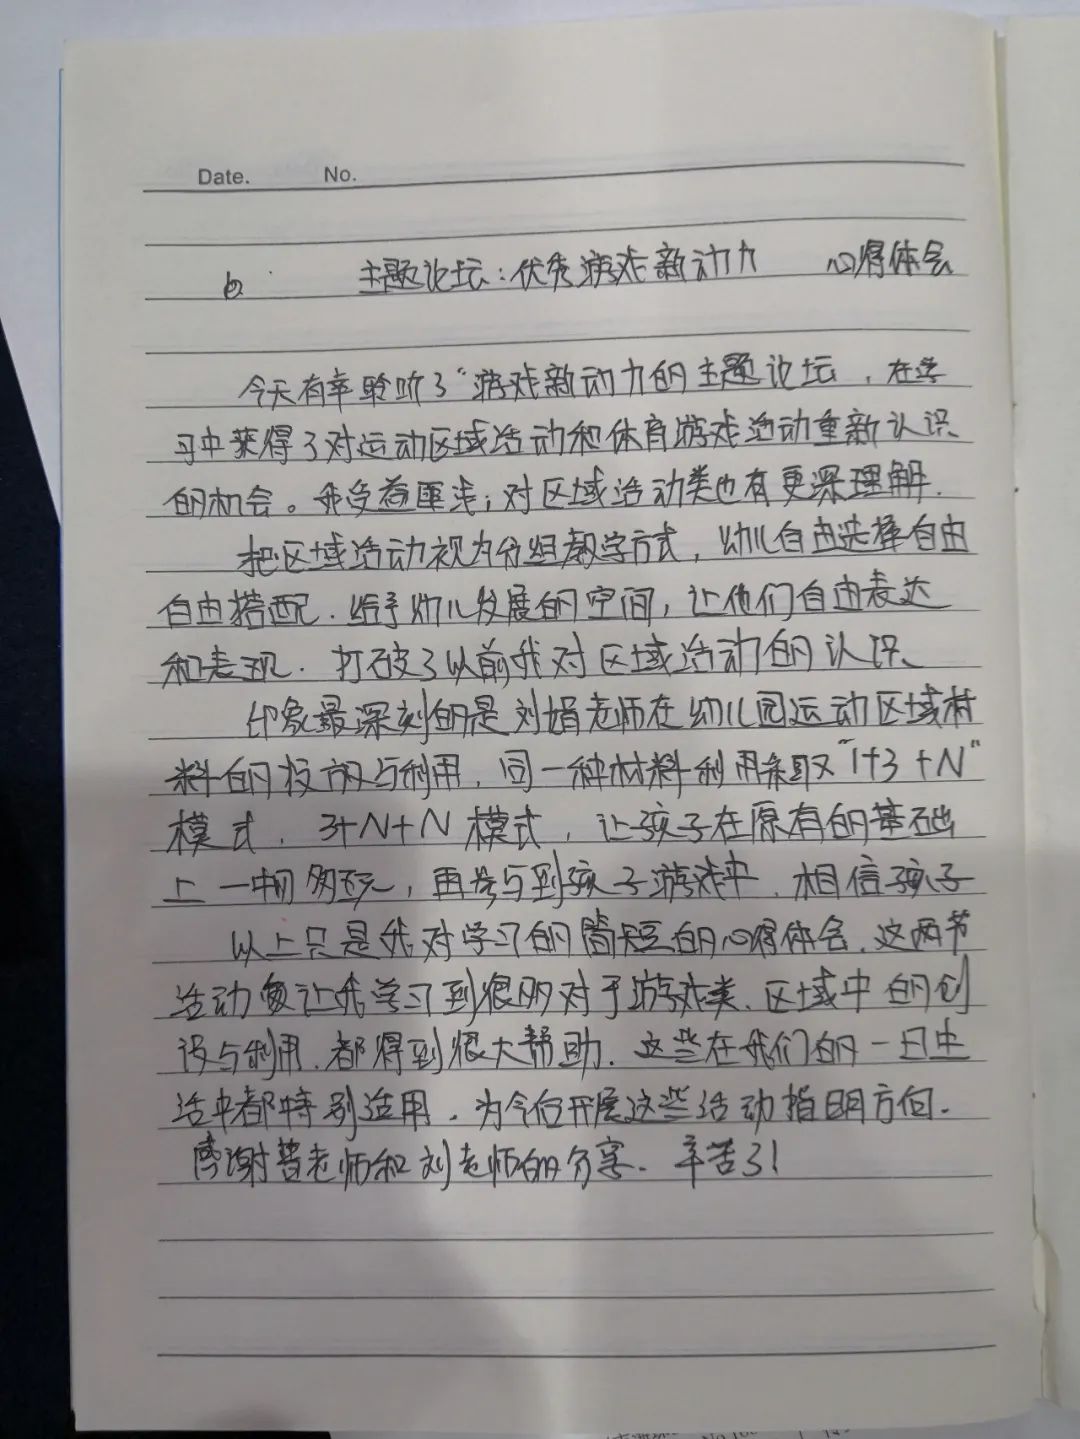 Date. No.
主题论坛：优秀游戏新动力 心得体会
今天有幸聆听了“游戏新动力的主题论坛，在学
习中获得了对运动区域活动和体育游戏活动重新认识
的机会。我受益匪浅；对区域活动类也有更深理解.
把区域活动视为分组教学方式，幼儿自由选择自由
自由搭配.给予幼儿发展的空间，让他们自由表达
和表现.打破了以前我对区域活动的认识、
印象最深刻的是刘娟老师在幼儿园运动区域材
料的投放与利用，同一种材料利用采取“1+3+N”
模式，3+N+N模式，让孩子在原有的基础
上一物多玩，再参与到孩子游戏中，相信孩子
以上只是我对学习的简短的心得体会，这两节
活动让我学习到很多对于游戏类、区域中的创
设与利用，都得到很大帮助.这些在我们的一日生
活中都特别适用，为今后开展这些活动指明方向.
感谢曾老师和刘老师的分享、辛苦了!